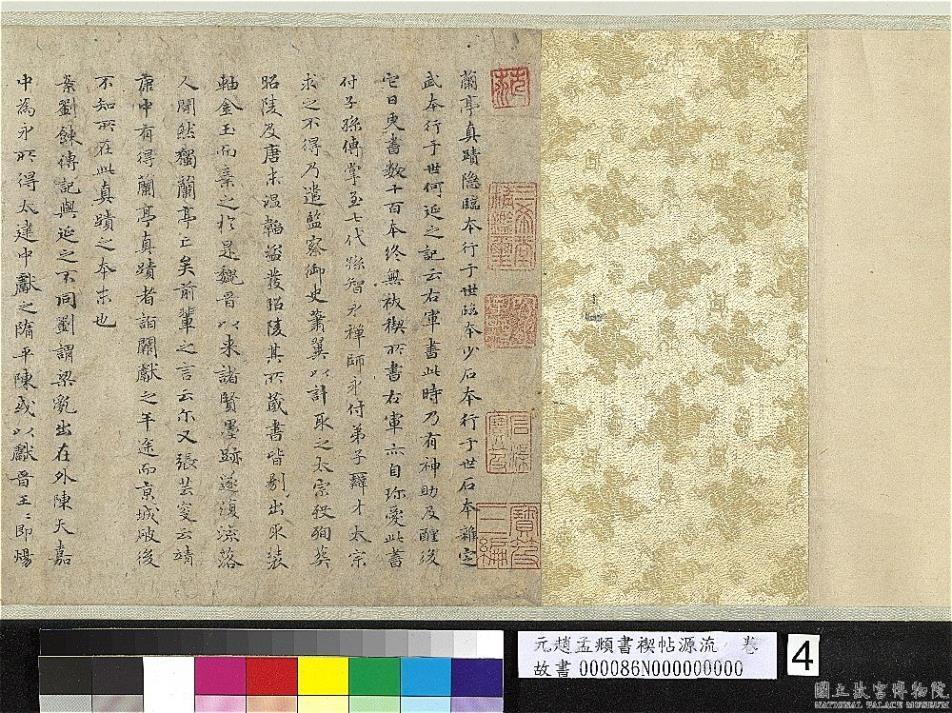 蘭亭真蹟隱臨本行于世臨本少石本行于世石本雜定
武本行于世何延之記云右軍書此時乃有神助及醒後
它日更書數十百本終無祓禊所書右軍亦自珍愛此書
付子孫傳掌至七代孫智永禪師永付弟子辯才太宗
求之不得乃遣監察御史蕭翼以計取之太宗歿殉葬
昭陵及唐末溫韜盜發昭陵其所藏書皆剔出取裝
軸金玉而棄之於是魏晉以來諸賢墨跡遂復流落
人間然獨蘭亭亡矣前輩之言云尔又張芸叟云靖
康中有得蘭亭真蹟者詣闕獻之半途而京城破後
不知所在此真蹟之本末也
案劉餗傳記與延之不同劉謂梁亂出在外陳天嘉
中為永所得太建中獻之隋平陳或以獻晉王王即煬
寶笈
三編
元趙孟頫書禊帖源流 卷
故書 000086N000000000
4
國立故宮博物院
NATIONAL PALACE MUSEUM